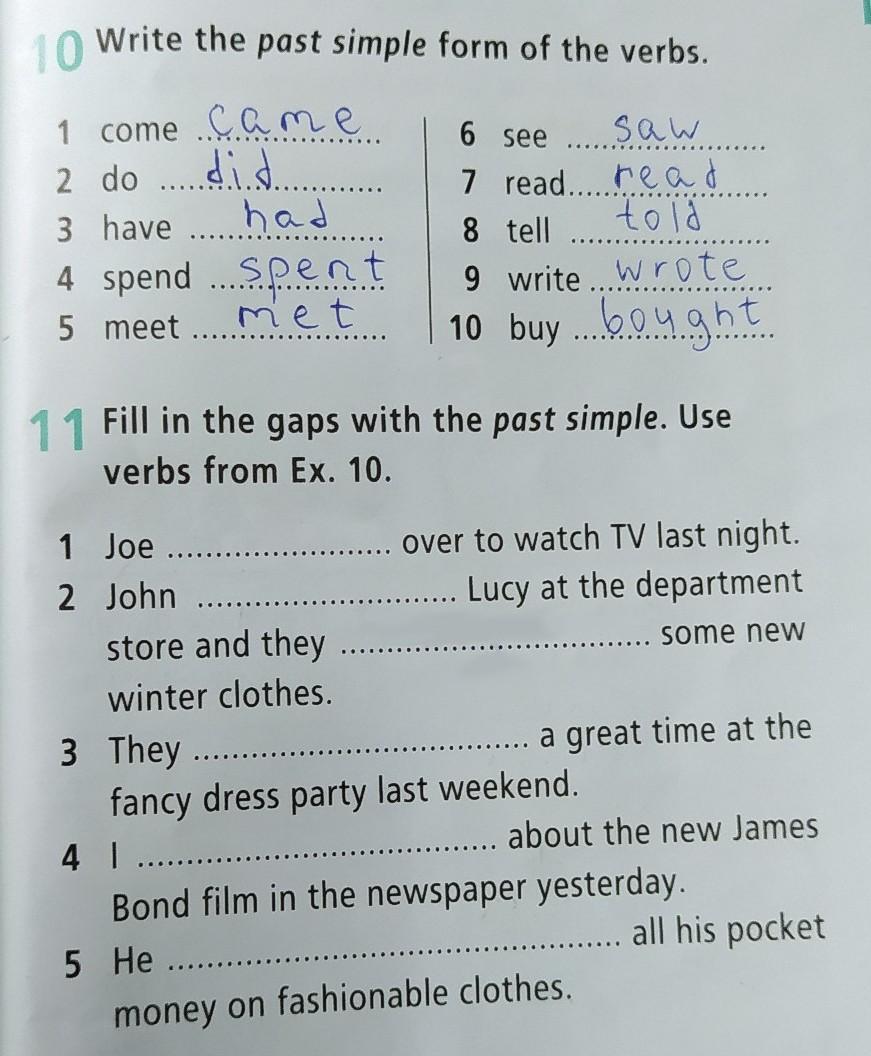 10 Write the past simple form of the verbs.
1 come ......came......
2 do ......did......
3 have ......had......
4 spend ......spent......
5 meet ......met......
6 see ......saw......
7 read......read......
8 tell ......told......
9 write ......wrote......
10 buy ......bought......
11 Fill in the gaps with the past simple. Use
verbs from Ex. 10.
1 Joe ........................ over to watch TV last night.
2 John ........................... Lucy at the department
store and they ................................ some new
winter clothes.
3 They ................................... a great time at the
fancy dress party last weekend.
4 I ..................................... about the new James
Bond film in the newspaper yesterday.
5 He ............................................... all his pocket
money on fashionable clothes.